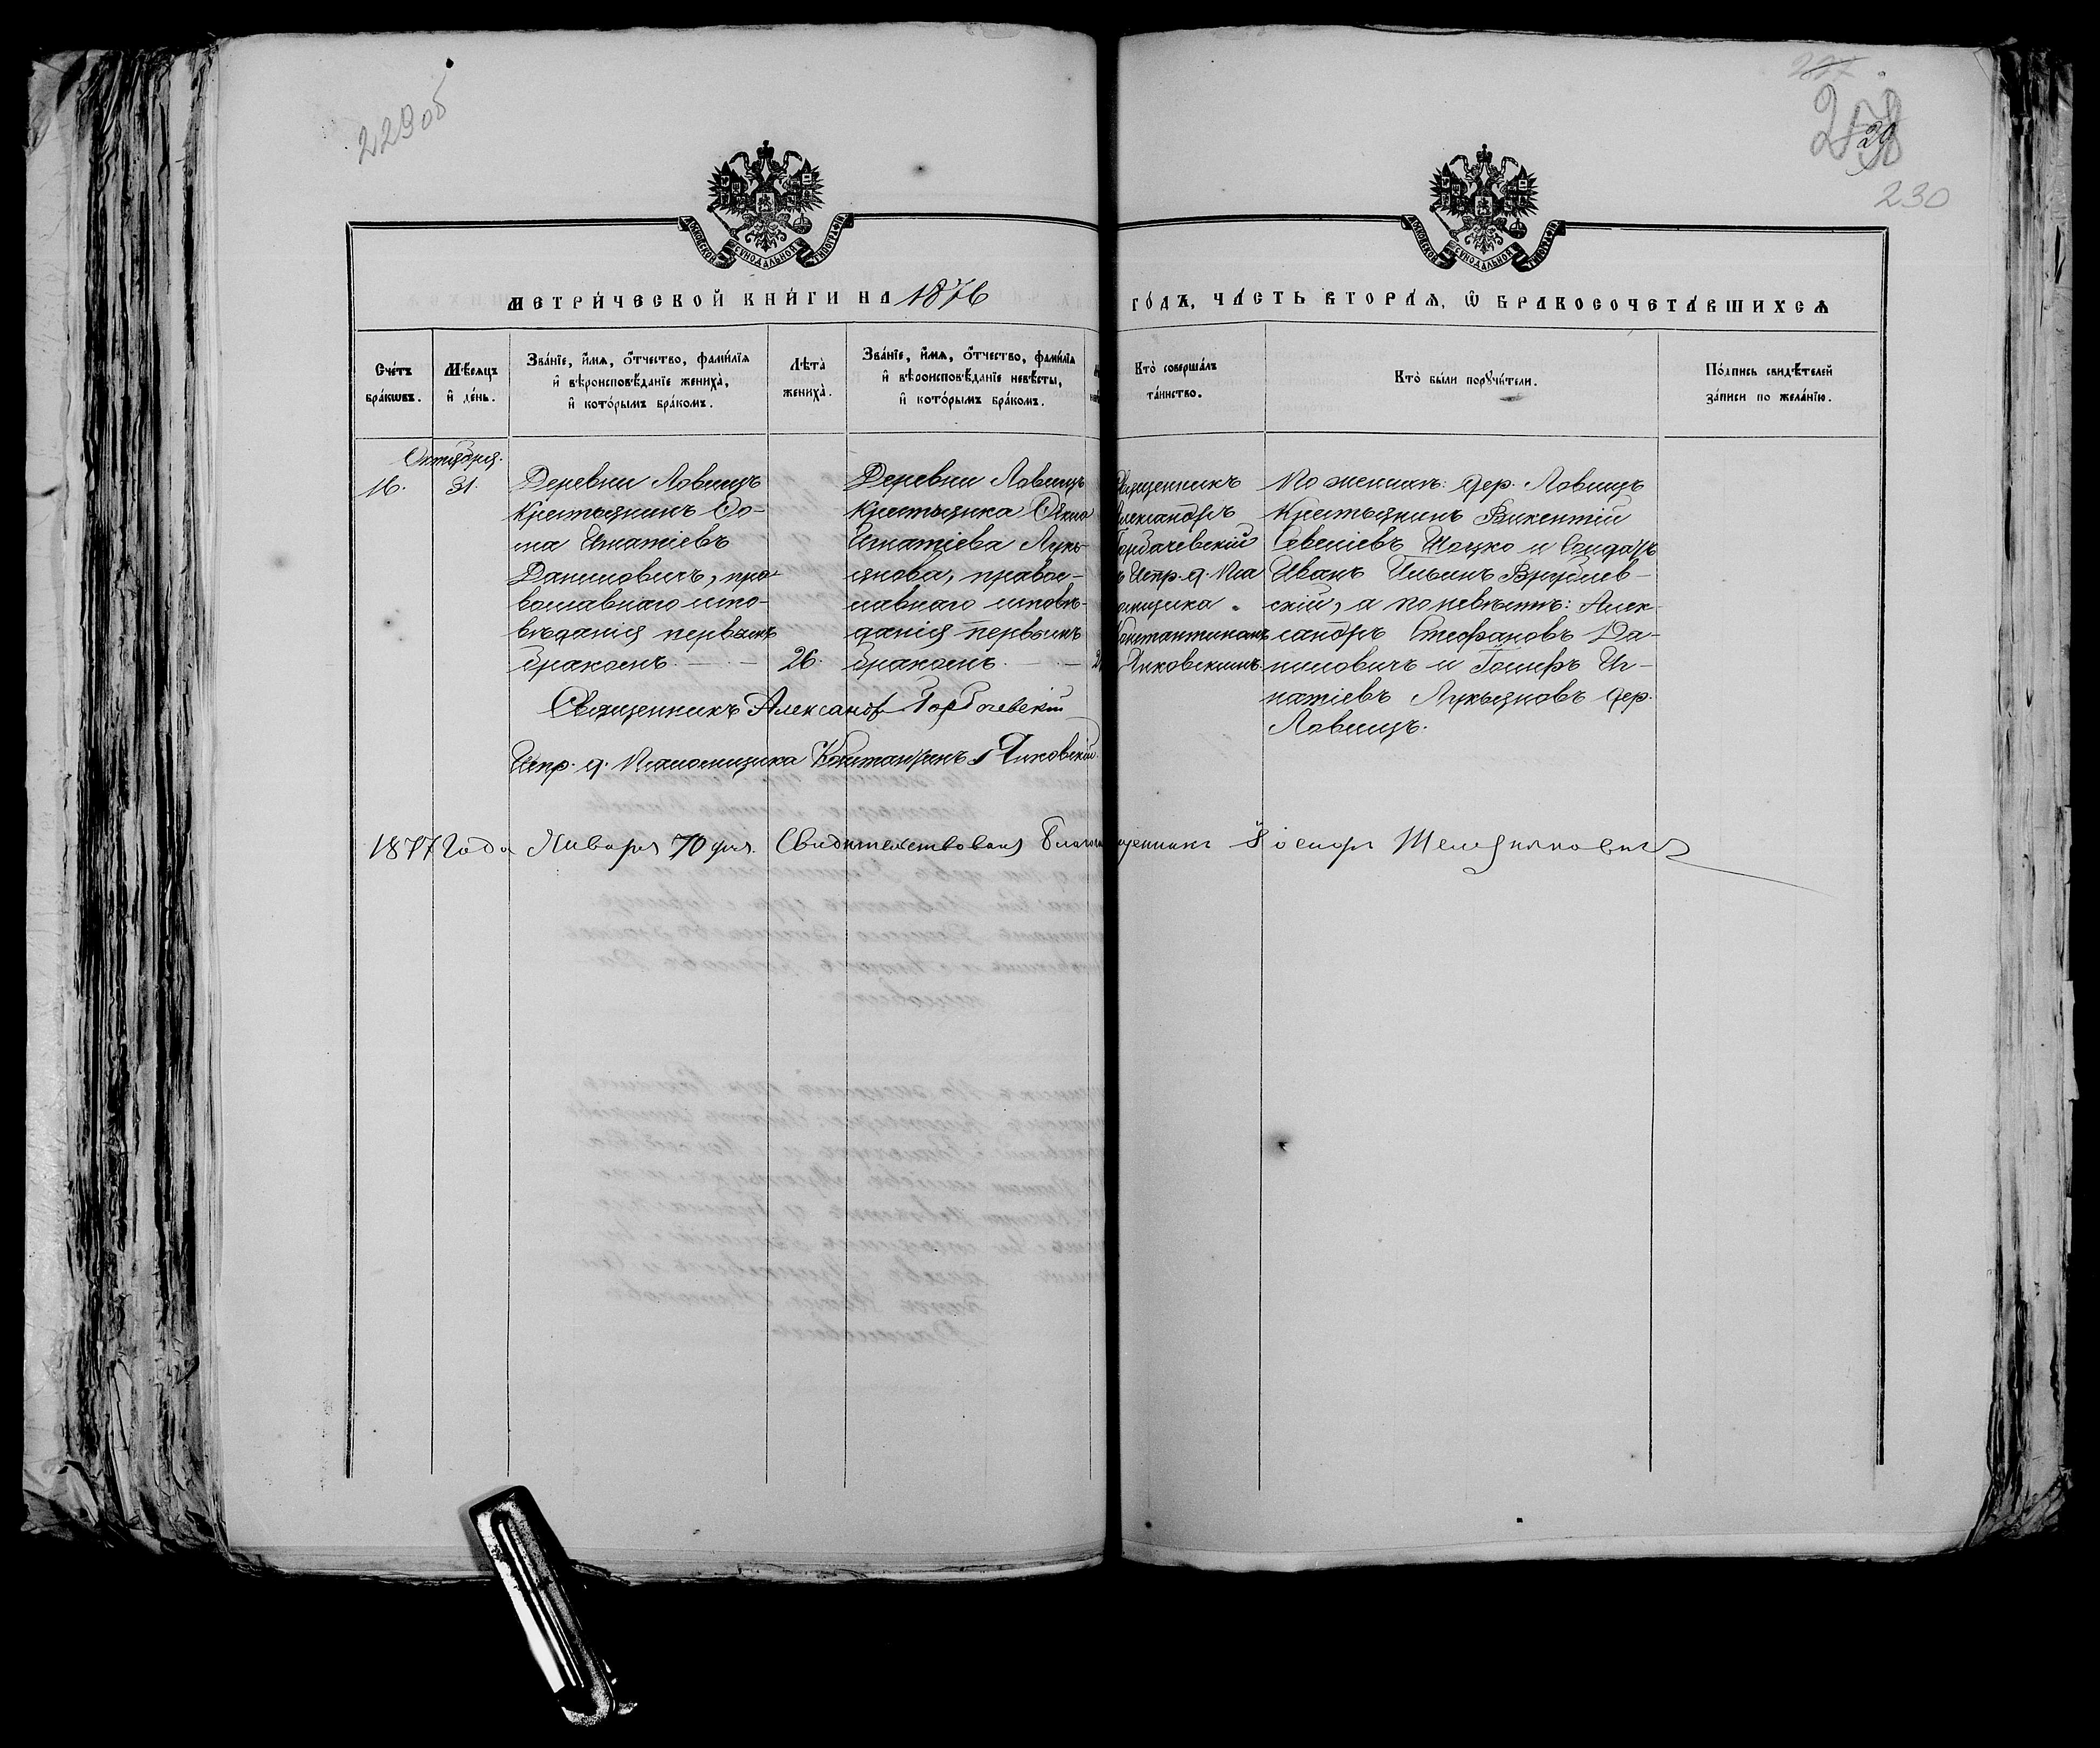 229 об
230
МОСКОВСКОЙ СѴНОДАЛЬНОЙ ТИПОГРАФІИ
МОСКОВСКОЙ СѴНОДАЛЬНОЙ ТИПОГРАФІИ
МЕТРИ́ЧЕСКОЙ КНИ́ГИ НА 1876 ГО́ДЪ, ЧА́СТЬ ВТОРА́Ѧ, Ѽ БРАКОСОЧЕТА́ВШИХСѦ
Сче́тъ бра́кѡвъ.
Мѣ́сѧцъ и҆ де́нь.
Зва́нїе, и҆́мѧ, ѻ҆́тчество, фами́лїѧ
и҆ вѣроисповѣ́данїе жениха̀,
и҆ кото́рымъ бра́комъ.
Лѣта̀
жениха̀.
Зва́нїе, и҆́мѧ, ѻ҆́тчество, фами́лїѧ
и҆ вѣроисповѣ́данїе невѣ́сты,
и҆ кото́рымъ бра́комъ.
Кто̀ соверша́лъ
та́инство.
Кто̀ бы́ли порꙋчи́тели.
По́дпись свидѣ́телей
за́писи по жела́нїю.
Октября.
16.
31.
Деревни Ловищъ
крестьянинъ Ѳо-
ма Игнатіевъ
Даниловичъ, пра-
вославнаго испо-
вѣданія первымъ
бракомъ. — —
26.
Деревни Ловищъ
крестьянка
Игнатіева Лукь-
янова, правос-
лавнаго исповѣ-
данія первымъ
бракомъ. — —
Священникъ
Александръ
Горбачевскій
Испр. д. Пса
ломщика
Константиномъ
Янковскимъ.
По женихѣ: дер. Ловищъ
крестьянинъ Викентій
Шоцко и Солдатъ
Иванъ Ильинъ Врублев-
скій, а по невѣстѣ: Алек-
сандръ Стефановъ Да-
ниловичъ и Иг-
натіевъ Лукьяновъ дер.
Ловищъ.
Священникъ Александръ Горбачевскій
Испр. д. Псаломщика Константинъ Янковскій.
1877 года Января 10 дня. Свидѣтельствовалъ